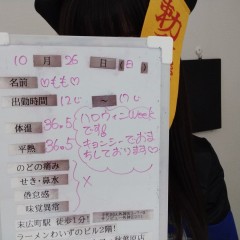 勤
10月26日(日)
名前 ♡もも♡
出勤時間 12じ～17じ
体温 36.5
平熱 36.5
ハロウィンWeek
です
キョンシーでおま
ちしております♡
のどの痛み
せき・鼻水
倦怠感
味覚異常
×
末広町駅 徒歩1分!
ラーメンわいずのビル2階!